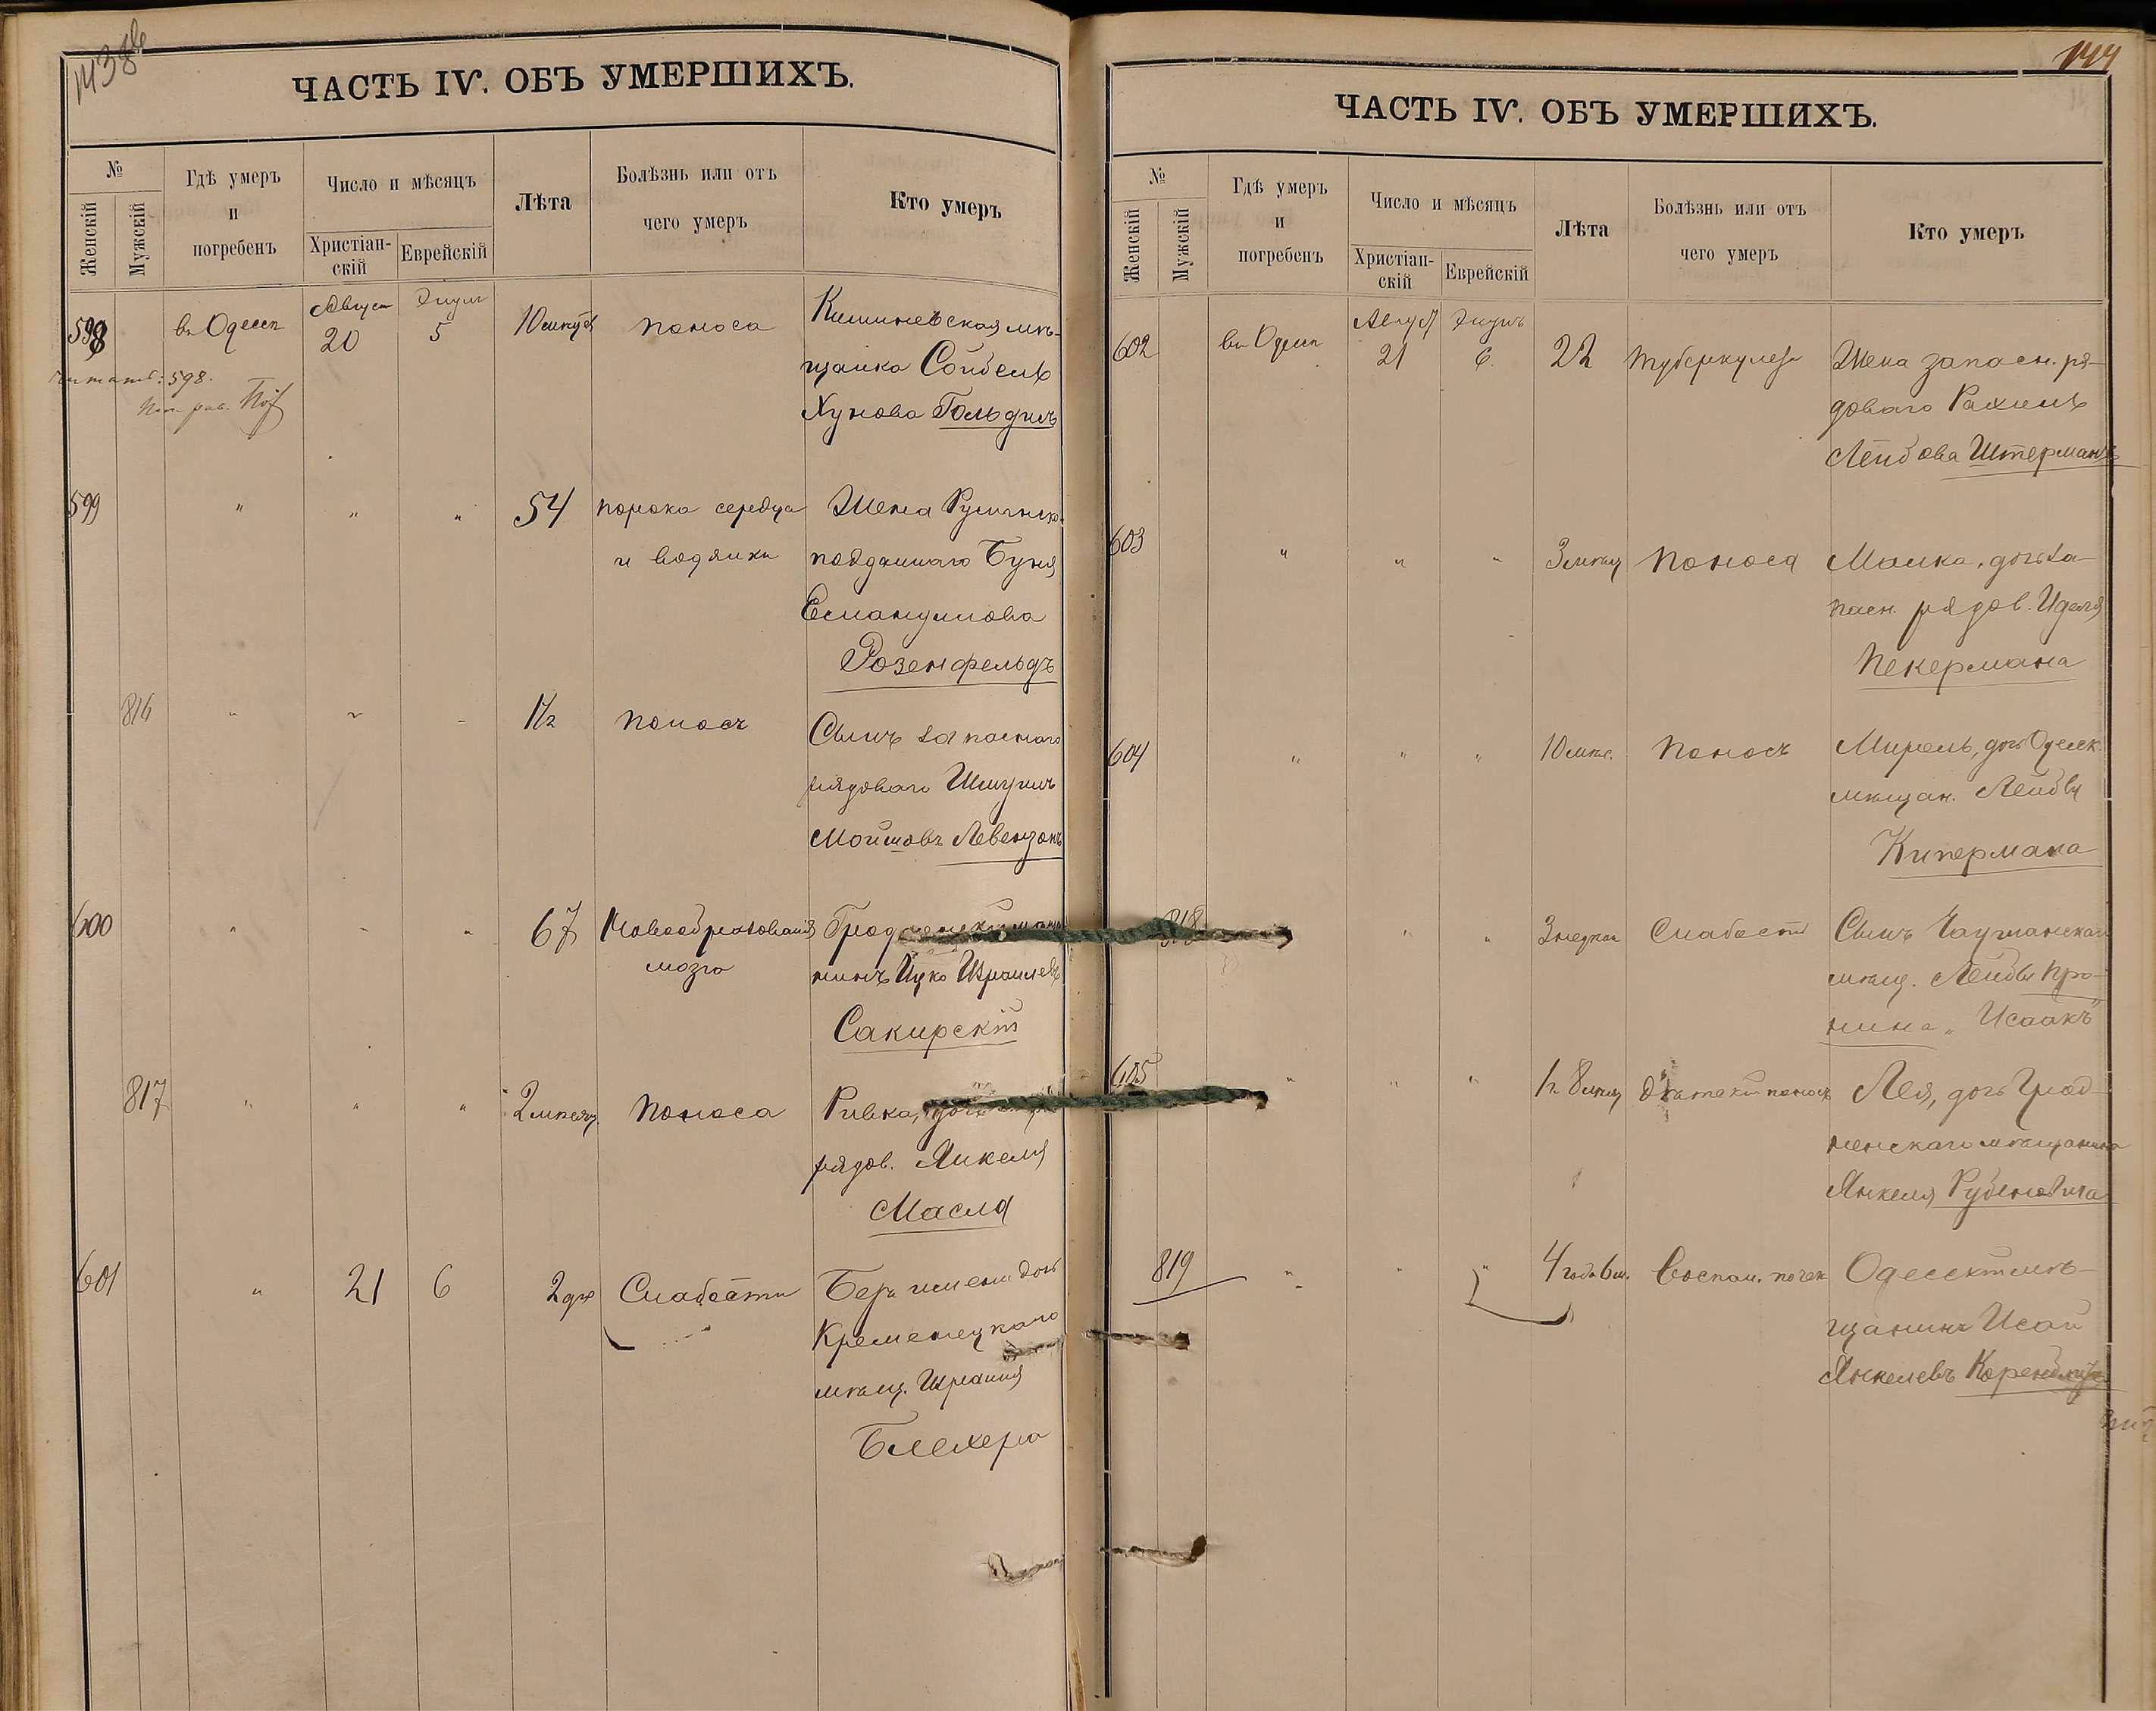 143 об
ЧАСТЬ IV. ОБЪ УМЕРШИХЪ.
№
Женскій
Мужскій
Гдѣ умеръ
и
погребенъ
Число и мѣсяцъ
Христіан-
скій
Еврейскій
Лѣта
Болѣзнь или отъ
чего умеръ
Кто умеръ
598 въ Одессѣ Август 20 Элулъ 5 10 мѣсяц поноса Кишиневская мѣ-
щанка Сойбель
Хунова Гольдиль
читать: 598.
599 " " " 54 порока сердца Жена Румынско
и водянки подданнаго Буня
Емануилова
Розенфельдъ
816 " " " 1½ поносъ Сынъ запаснаго
рядоваго Шмуиль
Мойшовъ Левензонъ
600 " " " 67 Новообразованія
мозга нинъ Ицко Израилевъ
Сакирскій
817 " " " 2 мѣсяц. поноса Ривка, дочь
рядов. Янкеля
Масла
601 " 21 6 2 дня Слабости Безъ имени дочь
Кременецкаго
мѣщ. Израиля
Блехера
144
ЧАСТЬ IV. ОБЪ УМЕРШИХЪ.
№
Женскій
Мужскій
Гдѣ умеръ
и
погребенъ
Число и мѣсяцъ
Христіан-
скій
Еврейскій
Лѣта
Болѣзнь или отъ
чего умеръ
Кто умеръ
602 въ Одессѣ Август 21 Элулъ 6 22 туберкулеза Жена запасн. ря-
доваго Рахиль
Лейбова Штерманъ
603 " " " 3 мѣсяц поноса Малка, дочь за-
пасн. рядов. Иделя
Пекермана
604 " " " 10 мѣс. поносъ Мирель, дочь Одесск.
мѣщан. Лейбы
Кипермана
818 " " 3 недѣли Слабости Сынъ
мѣщ. Лейбы Про-
нина "Исаакъ"
605 " " " 1 г. 8 мѣсяц Дѣтскій поносъ Лея, дочь Грод-
ненскаго мѣщанина
Янкеля Рубеновича
819 " " " 4 года 6 м. Воспал. почек Одесскій мѣ-
щанинъ Исай
Янкелевъ